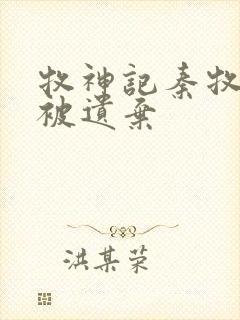 牧神記秦牧
被遺棄
洪某荣